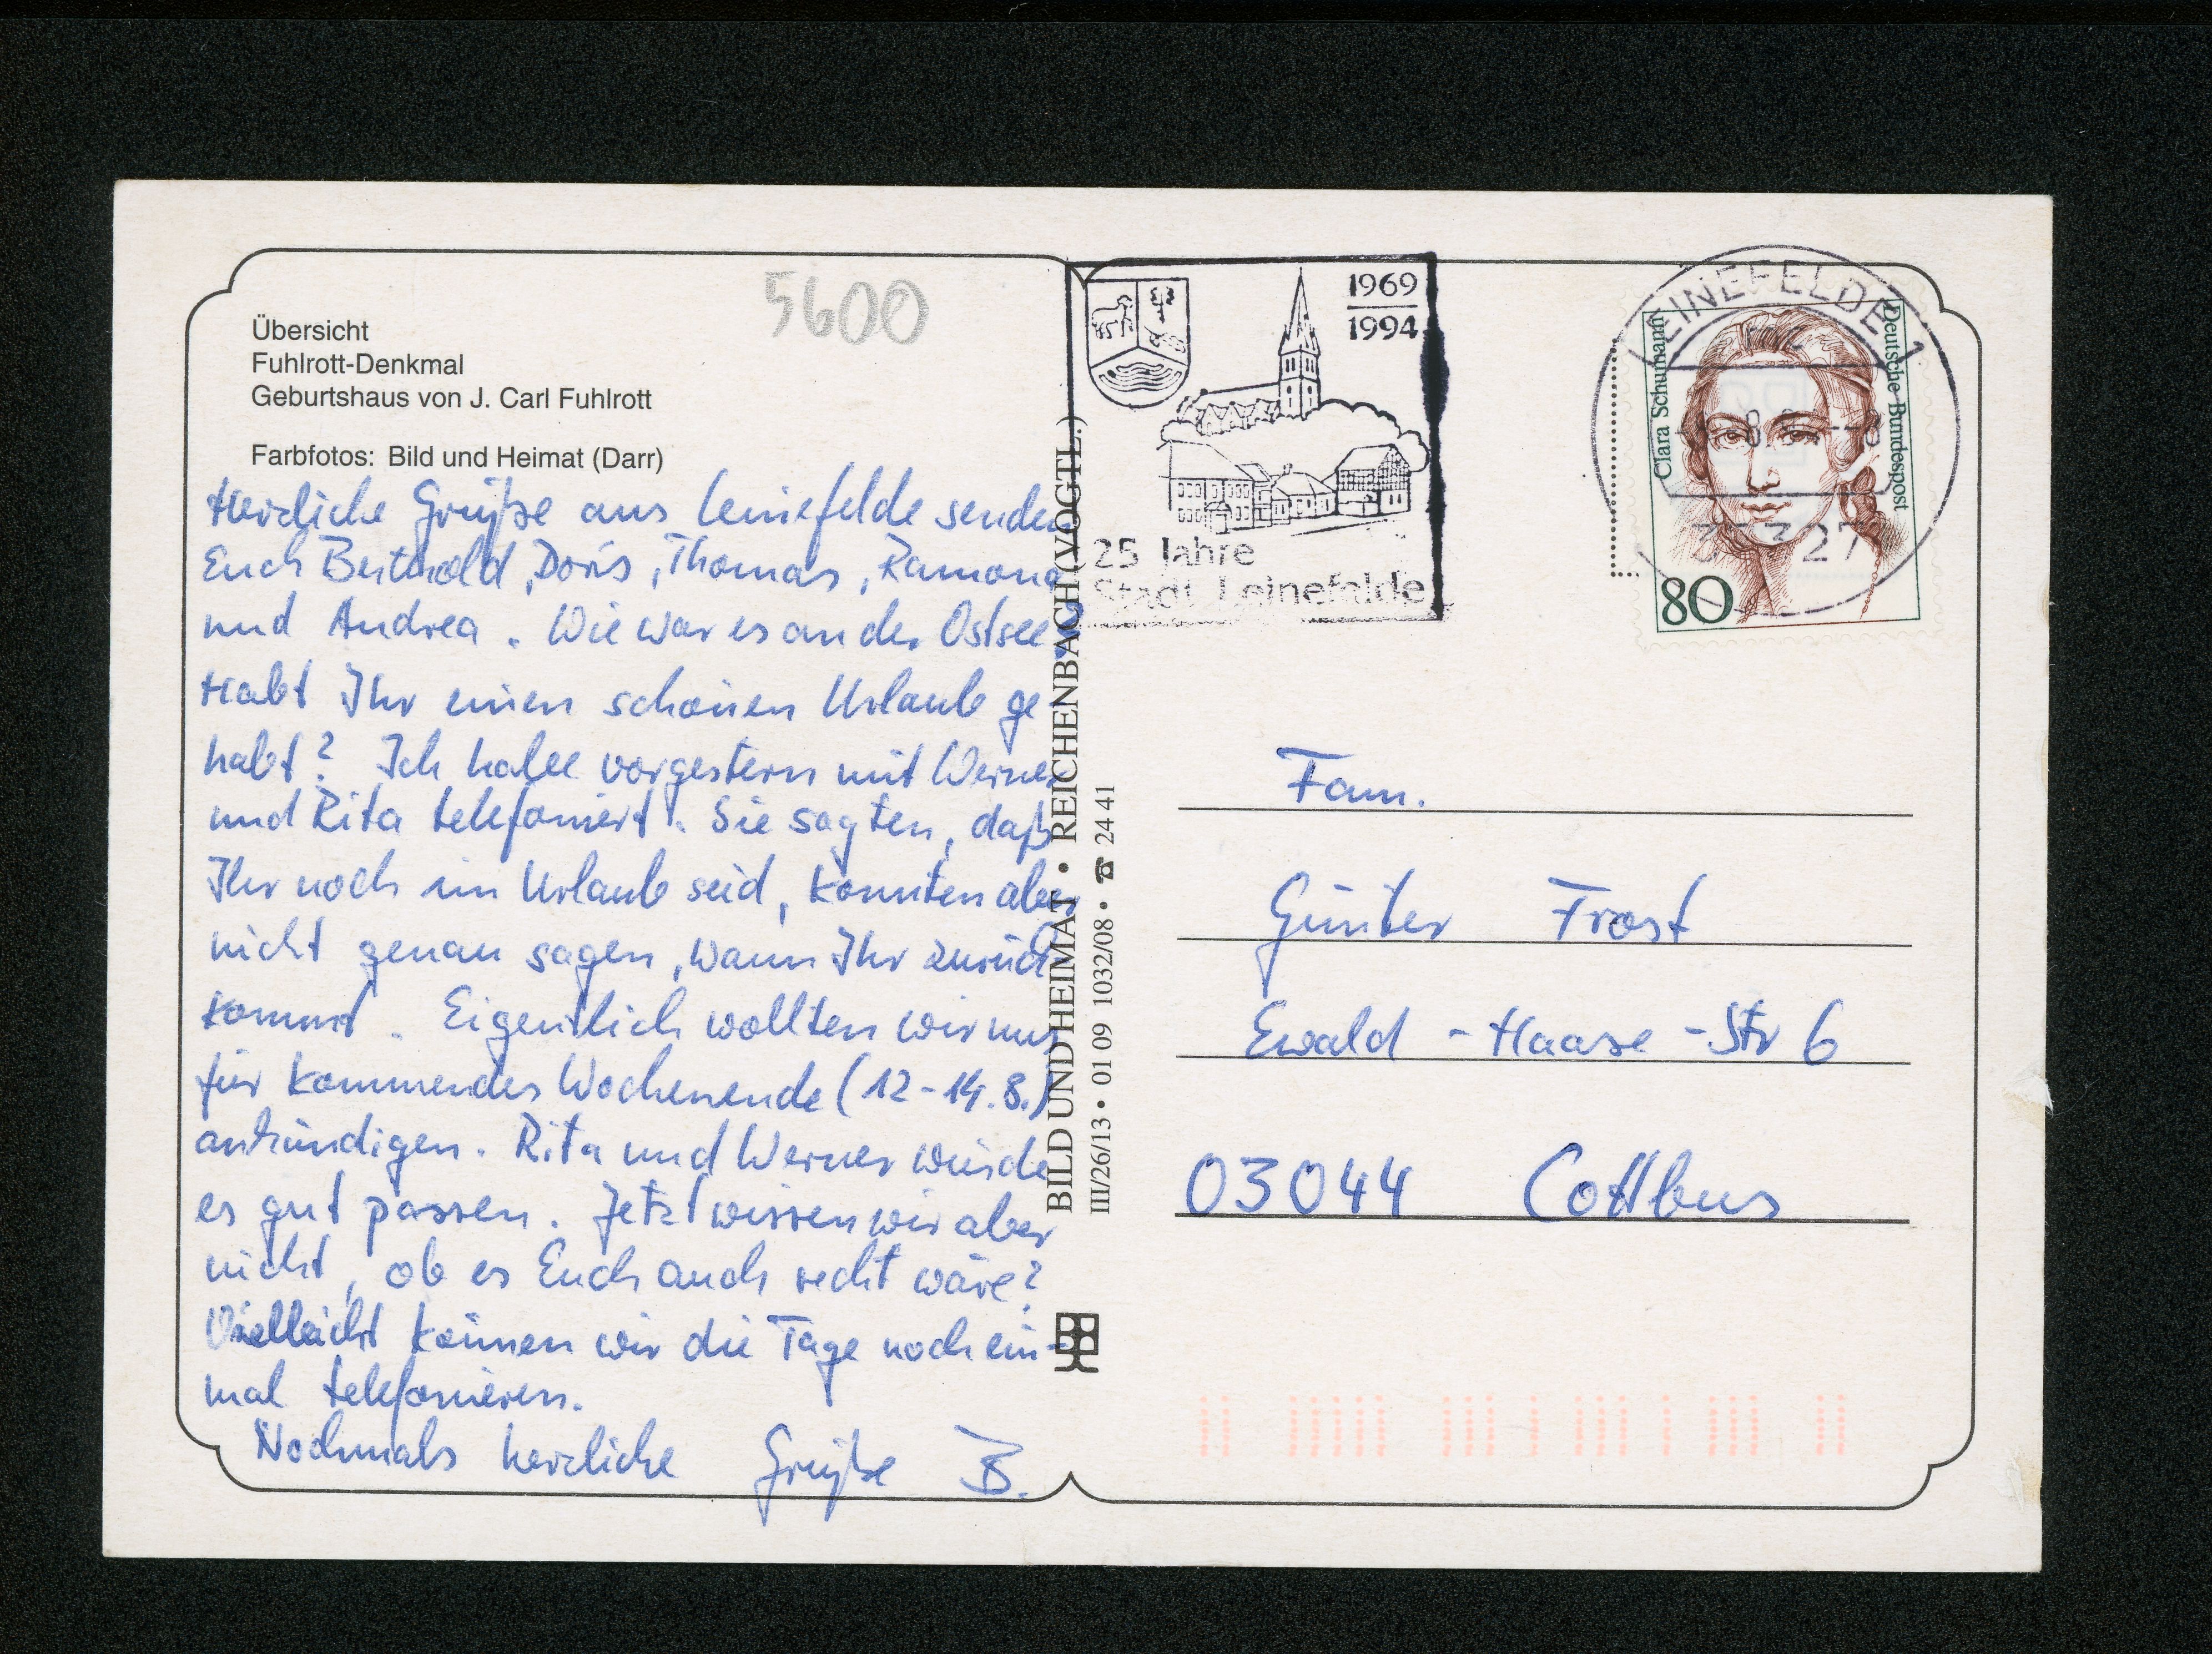 Übersicht
Fuhlrott-Denkmal
Geburtshaus von J. Carl Fuhlrott
Farbfotos: Bild und Heimat (Darr)
5600
Herzliche Grüße aus Leinefelde senden
Euch Berthold, Doris, Thomas, Ramona
und Andrea. Wie war es an der Ostsee?
Habt Ihr einen schönen Urlaub ge-
habt? Ich habe vorgestern mit Werner
und Rita telefoniert. Sie sagten, daß
Ihr noch im Urlaub seid, konnten aber
nicht genau sagen, wann Ihr zurück
kommt. Eigentlich wollten wir uns
für kommendes Wochenende (12-14.8.)
ankündigen. Rita und Werner würde
es gut passen. Jetzt wissen wir aber
nicht, ob es Euch auch recht wäre?
Vielleicht können wir die Tage noch ein-
mal telefonieren.
Nochmals herzliche Grüße B.
BILD UND HEIMAT • REICHENBACH (VOGTL.)
III/26/13 • 01 09 1032/08 • ☎ 24 41
1969
1994
25 Jahre
Stadt Leinefelde
LEINEFELDE 1
37327
Clara Schumann
Deutsche Bundespost
80
Fam.
Günter Frost
Ewald-Haase-Str 6
03044 Cottbus